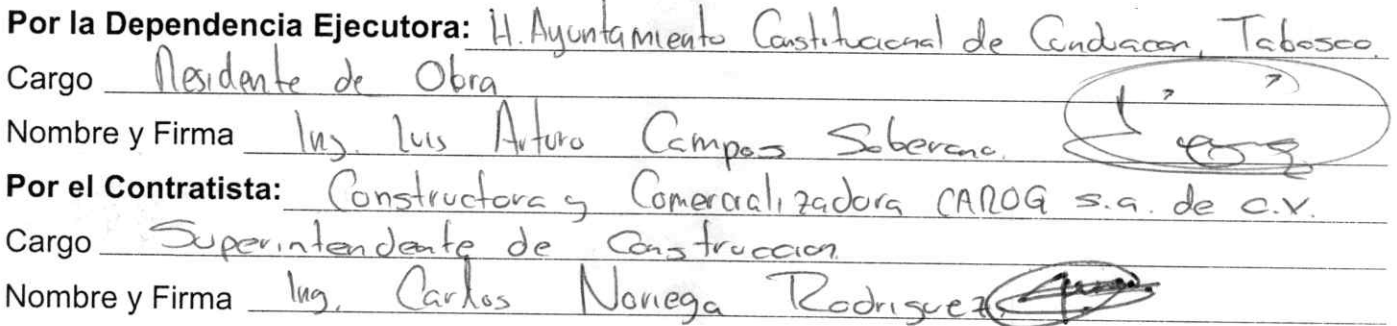 Por la Dependencia Ejecutora: H. Ayuntamiento Constitucional de Cunduacan, Tabasco.
Cargo Residente de Obra
Nombre y Firma Ing. Luis Arturo Campos Soberano.
Por el Contratista: Constructora y Comercializadora CAROG s.a. de c.v.
Cargo Superintendente de Construccion
Nombre y Firma Ing. Carlos Noriega Rodriguez